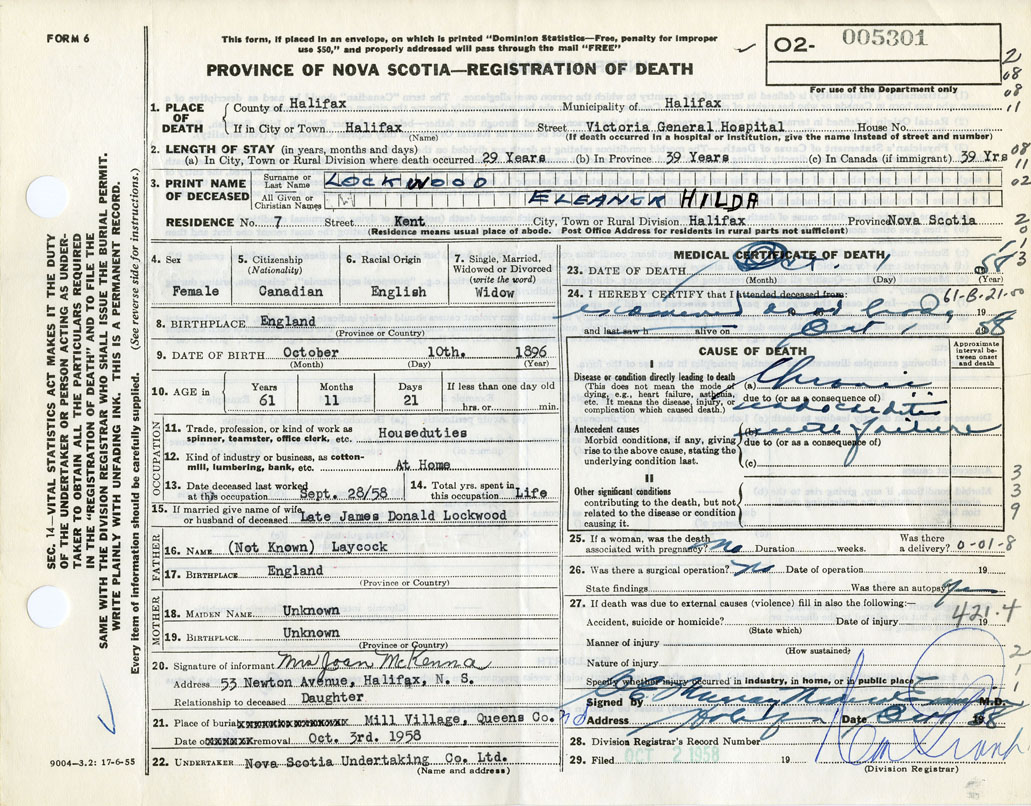 FORM 6
This form, if placed in an envelope, on which is printed "Dominion Statistics—Free, penalty for improper
use $50," and properly addressed will pass through the mail "FREE"
O2- 005301
For use of the Department only
PROVINCE OF NOVA SCOTIA—REGISTRATION OF DEATH
2
08
08
11
1. PLACE OF DEATH
County of Halifax Municipality of Halifax
If in City or Town Halifax Street Victoria General Hospital House No.
(Name) (If death occurred in a hospital or institution, give the name instead of street and number)
2. LENGTH OF STAY (in years, months and days)
(a) In City, Town or Rural Division where death occurred 29 Years (b) In Province 39 Years (c) In Canada (if immigrant) 39 Yrs
08
11
02
3. PRINT NAME OF DECEASED
Surname or Last Name LOCKWOOD
All Given or Christian Names ELEANOR HILDA
RESIDENCE No. 7 Street Kent City, Town or Rural Division Halifax Province Nova Scotia
(Residence means usual place of abode. Post Office Address for residents in rural parts not sufficient)
2
0
1
3
4. Sex
Female
5. Citizenship
(Nationality)
Canadian
6. Racial Origin
English
7. Single, Married,
Widowed or Divorced
(write the word)
Widow
8. BIRTHPLACE England
(Province or Country)
9. DATE OF BIRTH October 10th. 1896
(Month) (Day) (Year)
10. AGE in
Years Months Days If less than one day old
61 11 21 hrs. or min.
OCCUPATION
11. Trade, profession, or kind of work as
spinner, teamster, office clerk, etc. Houseduties
12. Kind of industry or business, as cotton-
mill, lumbering, bank, etc. At Home
13. Date deceased last worked
at this occupation Sept. 28/58
14. Total yrs. spent in
this occupation Life
15. If married give name of wife
or husband of deceased Late James Donald Lockwood
FATHER
16. NAME (Not Known) Laycock
17. BIRTHPLACE England
(Province or Country)
MOTHER
18. MAIDEN NAME Unknown
19. BIRTHPLACE Unknown
(Province or Country)
20. Signature of informant Mrs Joan McKenna
Address 53 Newton Avenue, Halifax, N. S.
Relationship to deceased Daughter
21. Place of burial Mill Village, Queens Co. NS
Date of removal Oct. 3rd. 1958
22. UNDERTAKER Nova Scotia Undertaking Co. Ltd.
(Name and address)
MEDICAL CERTIFICATE OF DEATH
23. DATE OF DEATH Oct. 1 58
(Month) (Day) (Year)
24. I HEREBY CERTIFY that I attended deceased from:
61-B-21-50
examined 19 body 19
and last saw h alive on Oct 1 58
CAUSE OF DEATH
Approximate
interval be-
tween onset
and death
I
Disease or condition directly leading to death
(This does not mean the mode of
dying, e.g., heart failure, asthenia,
etc. It means the disease, injury, or
complication which caused death.)
(a) Chronic
due to (or as a consequence of)
endocarditis
Antecedent causes
Morbid conditions, if any, giving
rise to the above cause, stating the
underlying condition last.
(b) acute failure
due to (or as a consequence of)
(c)
II
Other significant conditions
contributing to the death, but not
related to the disease or condition
causing it.
3
3
9
25. If a woman, was the death
associated with pregnancy? no Duration weeks.
Was there
a delivery? 0-01-8
26. Was there a surgical operation? no Date of operation 19
State findings Was there an autopsy? Yes
27. If death was due to external causes (violence) fill in also the following:—
421.4
Accident, suicide or homicide? Date of injury 19
(State which)
Manner of injury
(How sustained)
Nature of injury
Specify whether injury occurred in industry, in home, or in public place
2
1
1
Signed by Murray M.D.
Address Halifax Date Oct 1 1958
28. Division Registrar's Record Number
29. Filed OCT 2 1958 19
(Division Registrar)
SEC. 14—VITAL STATISTICS ACT MAKES IT THE DUTY
OF THE UNDERTAKER OR PERSON ACTING AS UNDER-
TAKER TO OBTAIN ALL THE PARTICULARS REQUIRED
IN THE "REGISTRATION OF DEATH" AND TO FILE THE
SAME WITH THE DIVISION REGISTRAR WHO SHALL ISSUE THE BURIAL PERMIT.
WRITE PLAINLY WITH UNFADING INK. THIS IS A PERMANENT RECORD.
Every item of information should be carefully supplied. (See reverse side for instructions.)
9004-3.2: 17-6-55